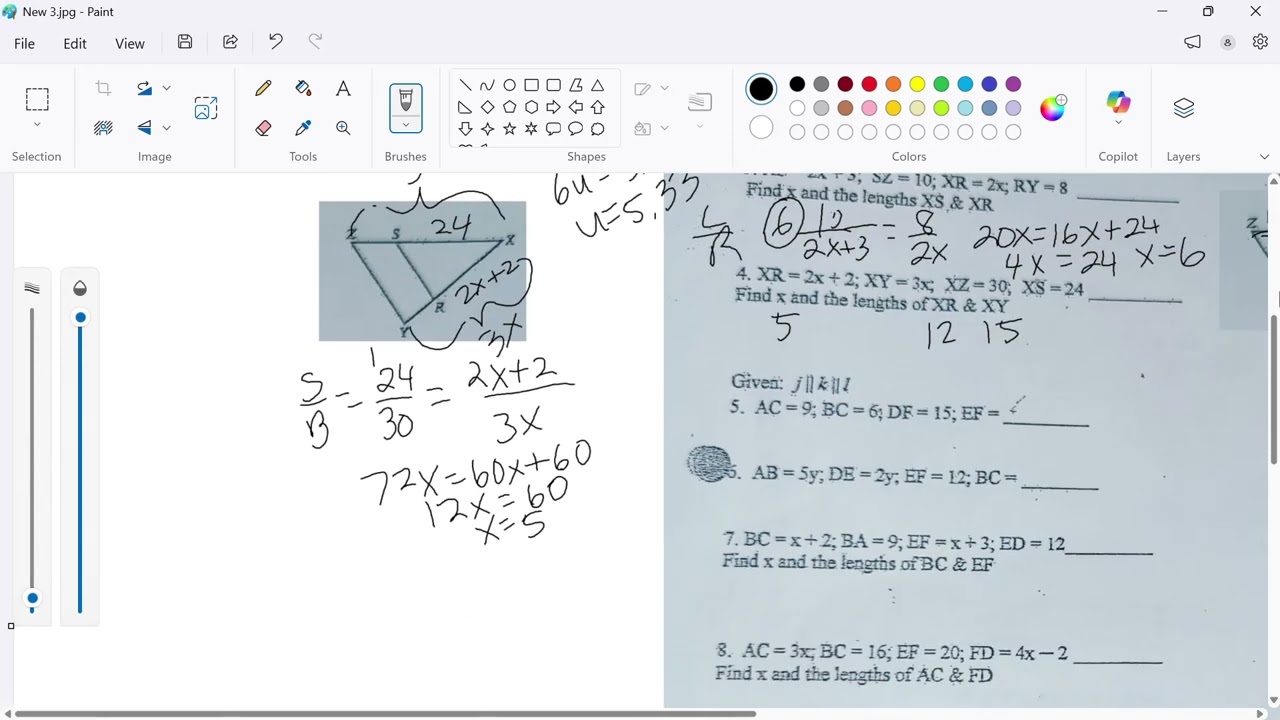 New 3.jpg - Paint
File Edit View
Selection Image Tools Brushes Shapes Colors Copilot Layers
6u=
u=5.33
2x + 3; SZ = 10; XR = 2x; RY = 8
Find x and the lengths XS & XR
6 12/2x+3 = 8/2x
20x=16x+24
4x=24 x=6
Z S 24 X
2x+2
R
Y
3x
4. XR = 2x + 2; XY = 3x; XZ = 30; XS = 24
Find x and the lengths of XR & XY
5 12 15
S/B = 24/30 = 2x+2/3x
72x=60x+60
12x=60
x=5
Given: j || k || l
5. AC = 9; BC = 6; DF = 15; EF =
6. AB = 5y; DE = 2y; EF = 12; BC =
7. BC = x + 2; BA = 9; EF = x + 3; ED = 12
Find x and the lengths of BC & EF
8. AC = 3x; BC = 16; EF = 20; FD = 4x – 2
Find x and the lengths of AC & FD